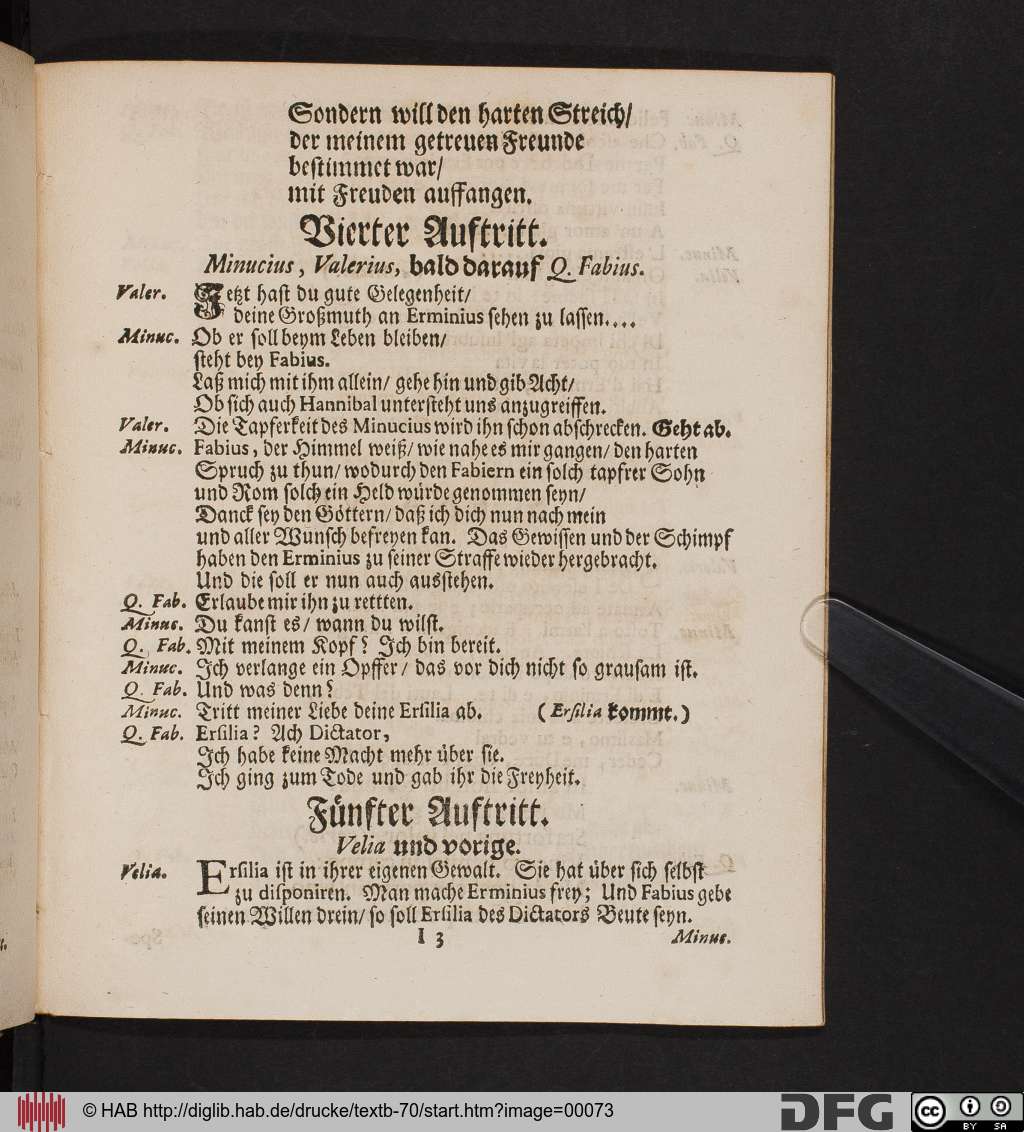 Sondern will den harten Streich/
der meinem getreuen Freunde
bestimmet war/
mit Freuden auffangen.
Vierter Auftritt.
Minucius, Valerius, bald darauf Q. Fabius.
Valer. Jetzt hast du gute Gelegenheit/
deine Großmuth an Erminius sehen zu lassen....
Minuc. Ob er soll beym Leben bleiben/
steht bey Fabius.
Laß mich mit ihm allein/ gehe hin und gib Acht/
Ob sich auch Hannibal untersteht uns anzugreiffen.
Valer. Die Tapferkeit des Minucius wird ihn schon abschrecken. Geht ab.
Minuc. Fabius, der Himmel weiß/ wie nahe es mir gangen/ den harten
Spruch zu thun/ wodurch den Fabiern ein solch tapfrer Sohn
und Rom solch ein Held würde genommen seyn/
Danck sey den Göttern/ daß ich dich nun nach mein
und aller Wunsch befreyen kan. Das Gewissen und der Schimpf
haben den Erminius zu seiner Straffe wieder hergebracht.
Und die soll er nun auch ausstehen.
Q. Fab. Erlaube mir ihn zu rettten.
Minuc. Du kanst es/ wann du wilst.
Q. Fab. Mit meinem Kopf? Ich bin bereit.
Minuc. Ich verlange ein Opffer/ das vor dich nicht so grausam ist.
Q. Fab. Und was denn?
Minuc. Tritt meiner Liebe deine Ersilia ab. (Ersilia kommt.)
Q. Fab. Ersilia? Ach Dictator,
Ich habe keine Macht mehr über sie.
Ich ging zum Tode und gab ihr die Freyheit.
Fünfter Auftritt.
Velia und vorige.
Velia. Ersilia ist in ihrer eigenen Gewalt. Sie hat über sich selbst
zu disponiren. Man mache Erminius frey; Und Fabius gebe
seinen Willen drein/ so soll Ersilia des Dictators Beute seyn.
I 3 Minuc.
© HAB http://diglib.hab.de/drucke/textb-70/start.htm?image=00073
DFG
cc BY SA